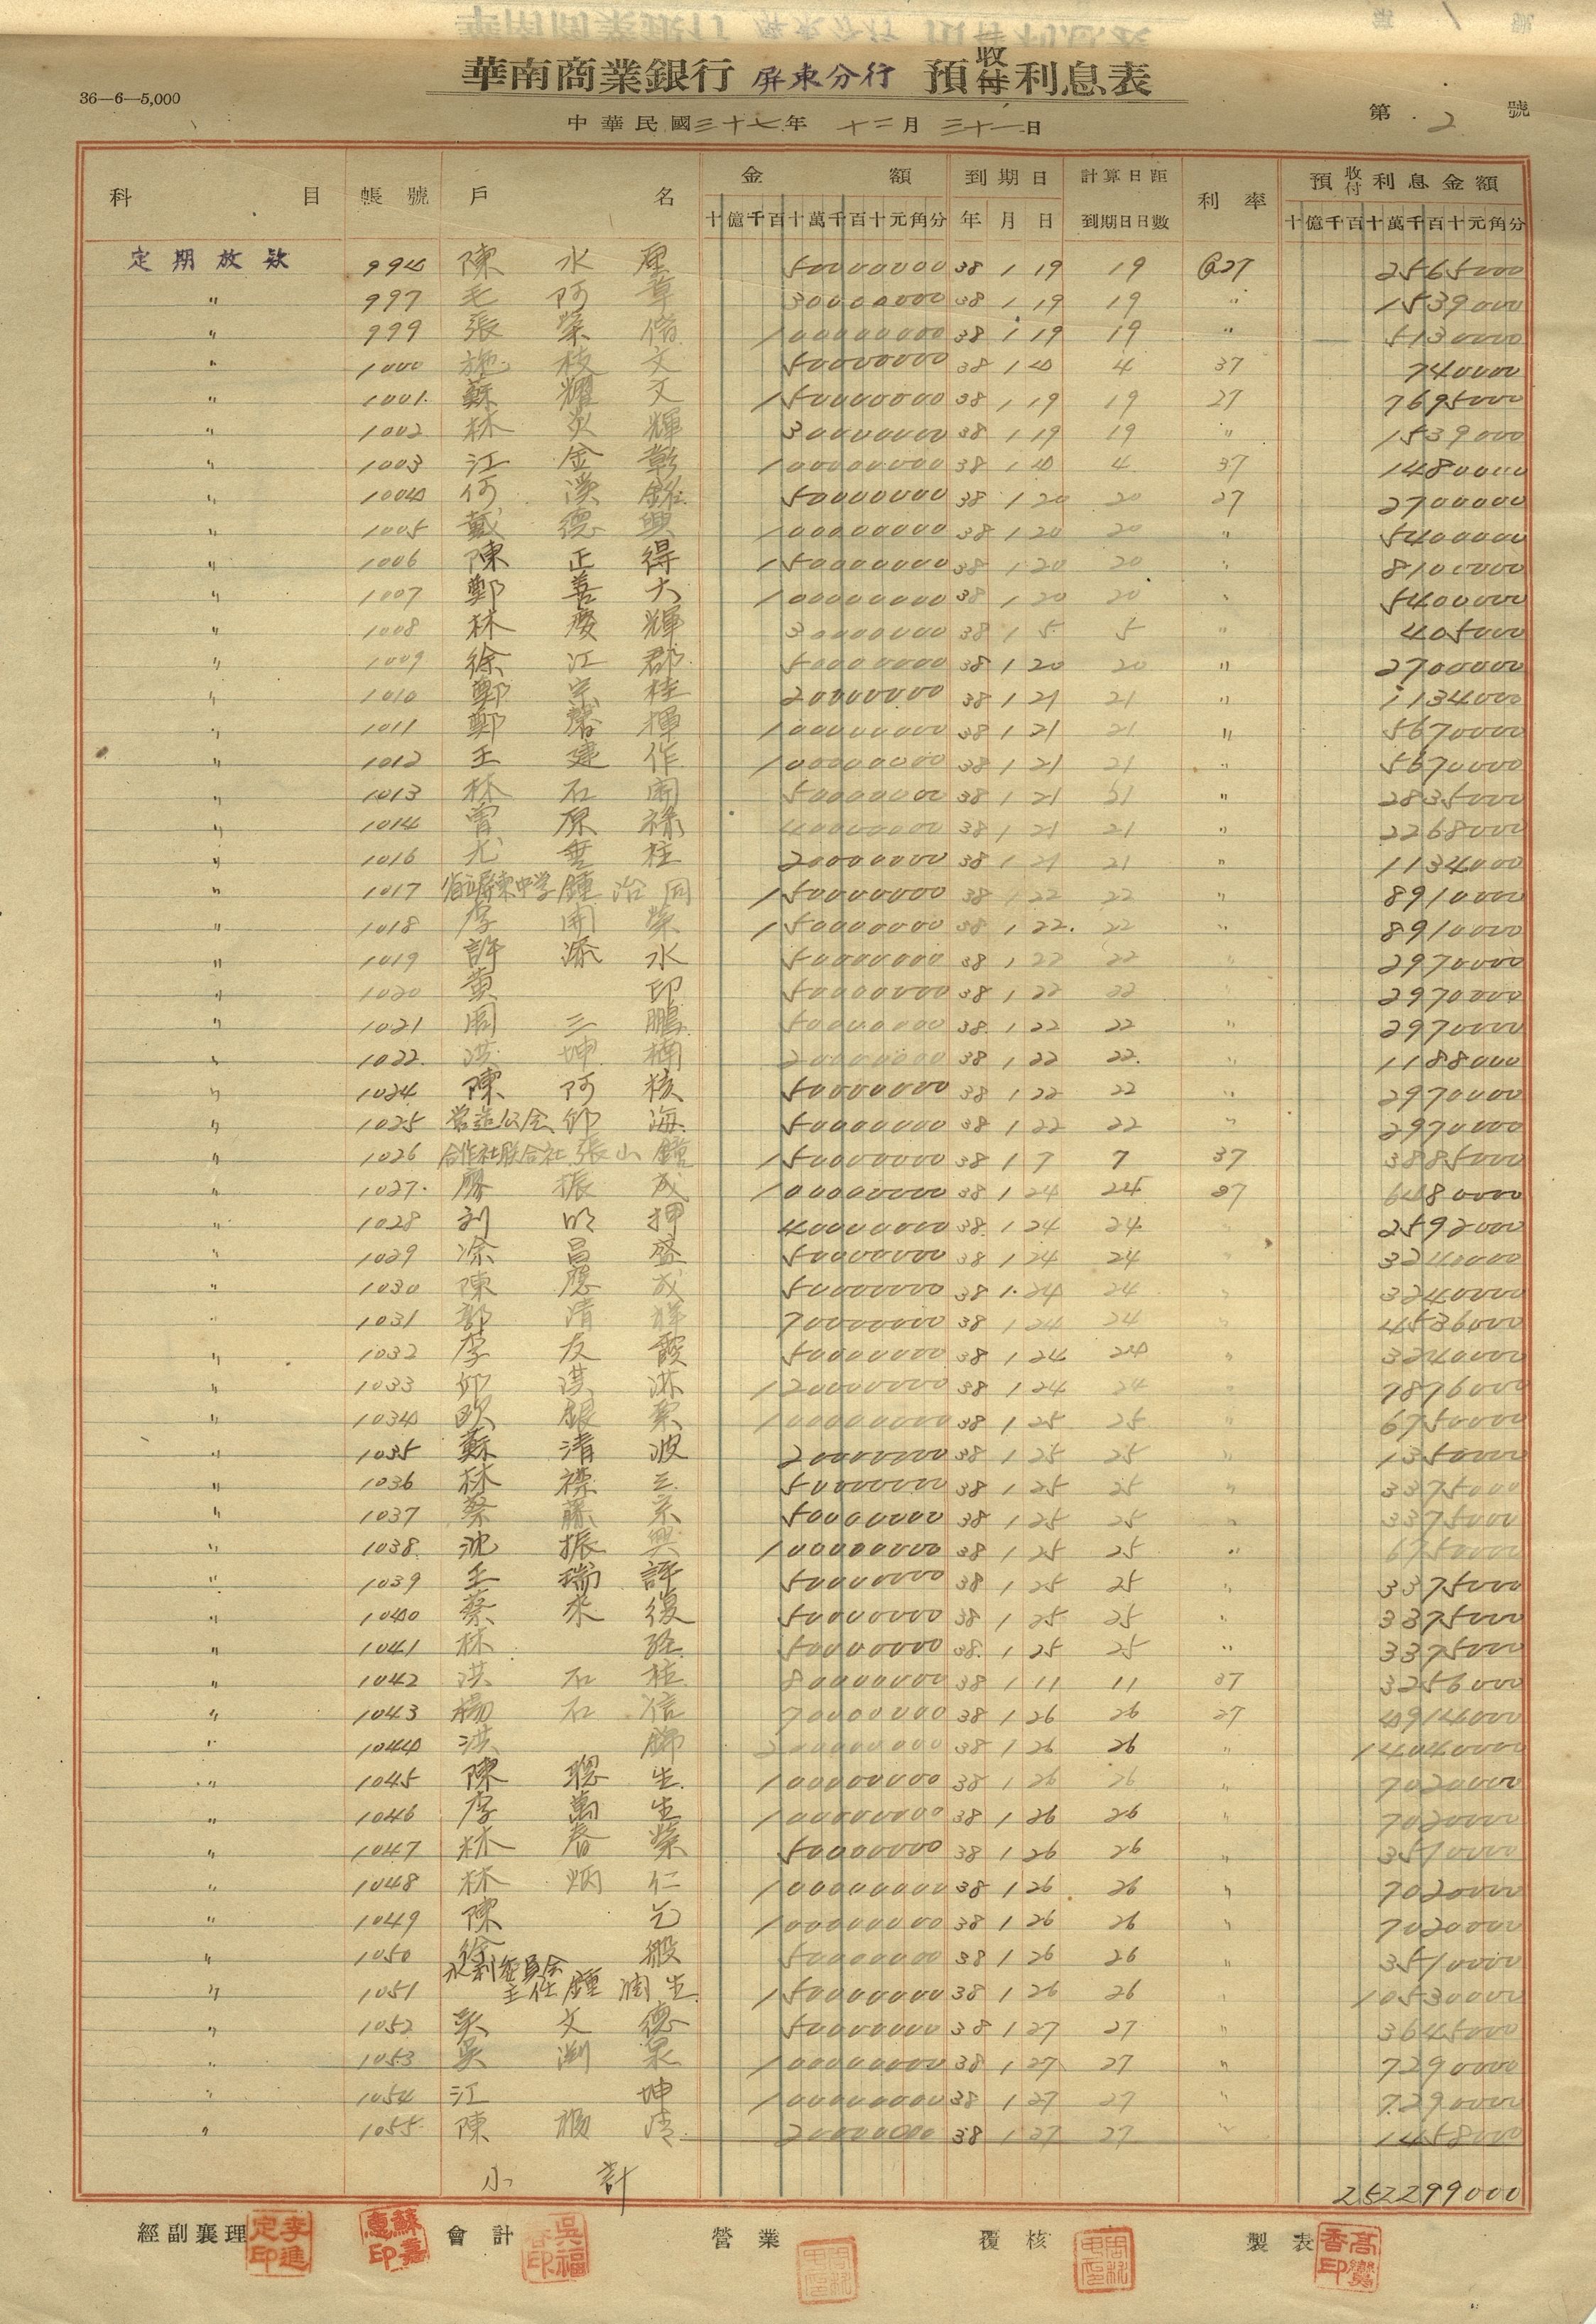 華南商業銀行 屏東分行 預收付利息表
36—6—5,000
中華民國三十七年 十二月 三十一日
第 2 號
科目 帳號 戶名 金額 到期日 計算日距到期日日數 利率 預收付利息金額
十億千百十萬千百十元角分 年 月 日 十億千百十萬千百十元角分
定期放款 994 陳水 50000000 38 1 19 19 @27 2565000
〃 997 毛阿章 30000000 38 1 19 19 〃 1539000
〃 999 張榮 100000000 38 1 19 19 〃 5130000
〃 1000 施枝文 50000000 38 1 4 4 37 740000
〃 1001 蘇耀文 150000000 38 1 19 19 27 7695000
〃 1002 林炎輝 30000000 38 1 19 19 〃 1539000
〃 1003 江金彰 100000000 38 1 4 4 37 1480000
〃 1004 何漢 50000000 38 1 20 20 27 2700000
〃 1005 戴德興 100000000 38 1 20 20 〃 5400000
〃 1006 陳正得 150000000 38 1 20 20 〃 8100000
〃 1007 鄭善大 100000000 38 1 20 20 〃 5400000
〃 1008 林慶輝 30000000 38 1 5 5 〃 405000
〃 1009 徐江郡 50000000 38 1 20 20 〃 2700000
〃 1010 鄭宗桂 20000000 38 1 21 21 〃 1134000
〃 1011 鄭馨揮 100000000 38 1 21 21 〃 5670000
〃 1012 王建作 100000000 38 1 21 21 〃 5670000
〃 1013 林石開 50000000 38 1 21 21 〃 2835000
〃 1014 曾原祿 40000000 38 1 21 21 〃 2268000
〃 1016 尤重柱 20000000 38 1 21 21 〃 1134000
〃 1017 省立屏東中学 鍾治同 150000000 38 1 22 22 〃 8910000
〃 1018 李開榮 150000000 38 1 22 22 〃 8910000
〃 1019 許添水 50000000 38 1 22 22 〃 2970000
〃 1020 黄印 50000000 38 1 22 22 〃 2970000
〃 1021 周三鵬 50000000 38 1 22 22 〃 2970000
〃 1022 洪坤楠 20000000 38 1 22 22 〃 1188000
〃 1024 陳阿核 50000000 38 1 22 22 〃 2970000
〃 1025 营造公会 仰海 50000000 38 1 22 22 〃 2970000
〃 1026 合作社联合社 張山鐘 150000000 38 1 7 7 37 3885000
〃 1027 廖振成 100000000 38 1 24 24 27 6480000
〃 1028 利明押 40000000 38 1 24 24 〃 2592000
〃 1029 涂昌盛 50000000 38 1 24 24 3240000
〃 1030 陳應成 50000000 38 1 24 24 〃 3240000
〃 1031 郭清輝 70000000 38 1 24 24 〃 4536000
〃 1032 李友霞 50000000 38 1 24 24 〃 3240000
〃 1033 仰洪淋 120000000 38 1 24 24 〃 7876000
〃 1034 歐銀 100000000 38 1 25 25 〃 6750000
〃 1035 蘇清波 20000000 38 1 25 25 〃 1350000
〃 1036 林襟三 50000000 38 1 25 25 〃 3375000
〃 1037 蔡藤 50000000 38 1 25 25 〃 3375000
〃 1038 沈振興 100000000 38 1 25 25 〃 6750000
〃 1039 王瑞評 50000000 38 1 25 25 〃 3375000
〃 1040 蔡來復 50000000 38 1 25 25 〃 3375000
〃 1041 林 50000000 38 1 25 25 〃 3375000
〃 1042 洪石柱 80000000 38 1 11 11 37 3256000
〃 1043 楊石信 70000000 38 1 26 26 27 4914000
〃 1044 洪 200000000 38 1 26 26 〃 14040000
〃 1045 陳聰生 100000000 38 1 26 26 〃 7020000
〃 1046 李萬生 100000000 38 1 26 26 〃 7020000
〃 1047 林春榮 50000000 38 1 26 26 〃 3510000
〃 1048 林炳仁 100000000 38 1 26 26 〃 7020000
〃 1049 陳乞 100000000 38 1 26 26 〃 7020000
〃 1050 徐搬 50000000 38 1 26 26 〃 3510000
〃 1051 水利委員会主任 鍾潤生 150000000 38 1 26 26 〃 10530000
〃 1052 吴文德 50000000 38 1 27 27 〃 3645000
〃 1053 吳渕泉 100000000 38 1 27 27 〃 7290000
〃 1054 江坤 100000000 38 1 27 27 〃 7290000
〃 1055 陳清 20000000 38 1 27 27 〃 1458000
小計 252299000
經副襄理 李進定印 蘇嘉惠印 會計 吳福香印 營業 覆核 製表 高鸞香印